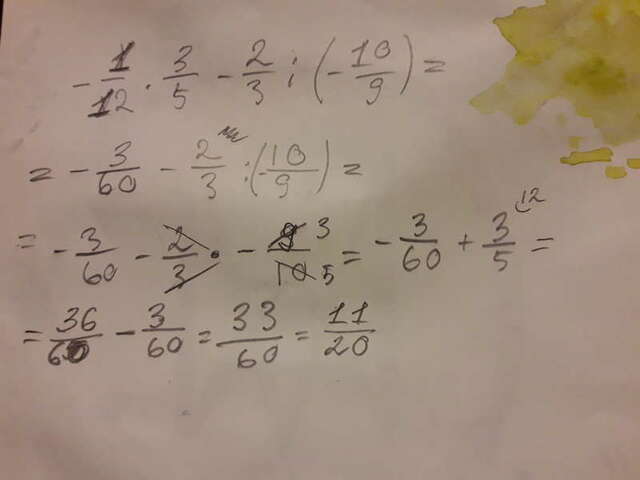 - 1/12 · 3/5 - 2/3 : (- 10/9) =
= - 3/60 - 2/3 : (- 10/9) =
= - 3/60 - 2/3 · - 9/10 3 5 = - 3/60 + 3/5 12 =
= 36/60 - 3/60 = 33/60 = 11/20